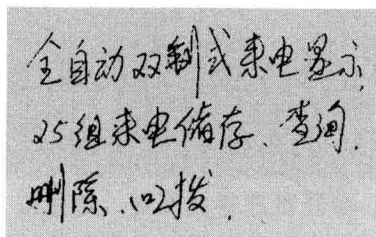 全自动双制式来电显示,
25组来电储存、查询.
删除、回拨.